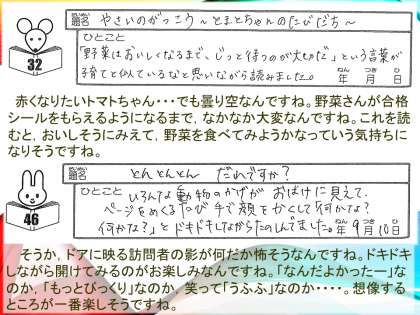 題名 やさいのがっこう～とまとちゃんのたびだち～
ひとこと
「野菜はおいしくなるまで、じっと待つのが大切だ」という言葉が
子育てと似ているなと思いながら読みました。 年 月 日
32
赤くなりたいトマトちゃん・・・でも曇り空なんですね。野菜さんが合格
シールをもらえるようになるまで，なかなか大変なんですね。これを読
むと，おいしそうにみえて，野菜を食べてみようかなっていう気持ちに
なりそうですね。
題名 とんとんとん だれですか？
ひとこと
いろんな動物のかげが おばけに見えて、
ページをめくるたび手で顔をかくして「何かな？
何かな？」とドキドキしながらたのしんでました。 年 9月10日
46
そうか，ドアに映る訪問者の影が何だか怖そうなんですね。ドキドキ
しながら開けてみるのがお楽しみなんですね。「なんだよかったー」な
のか，「もっとびっくり」なのか，笑って「うふふ」なのか・・・・。想像する
ところが一番楽しそうですね。